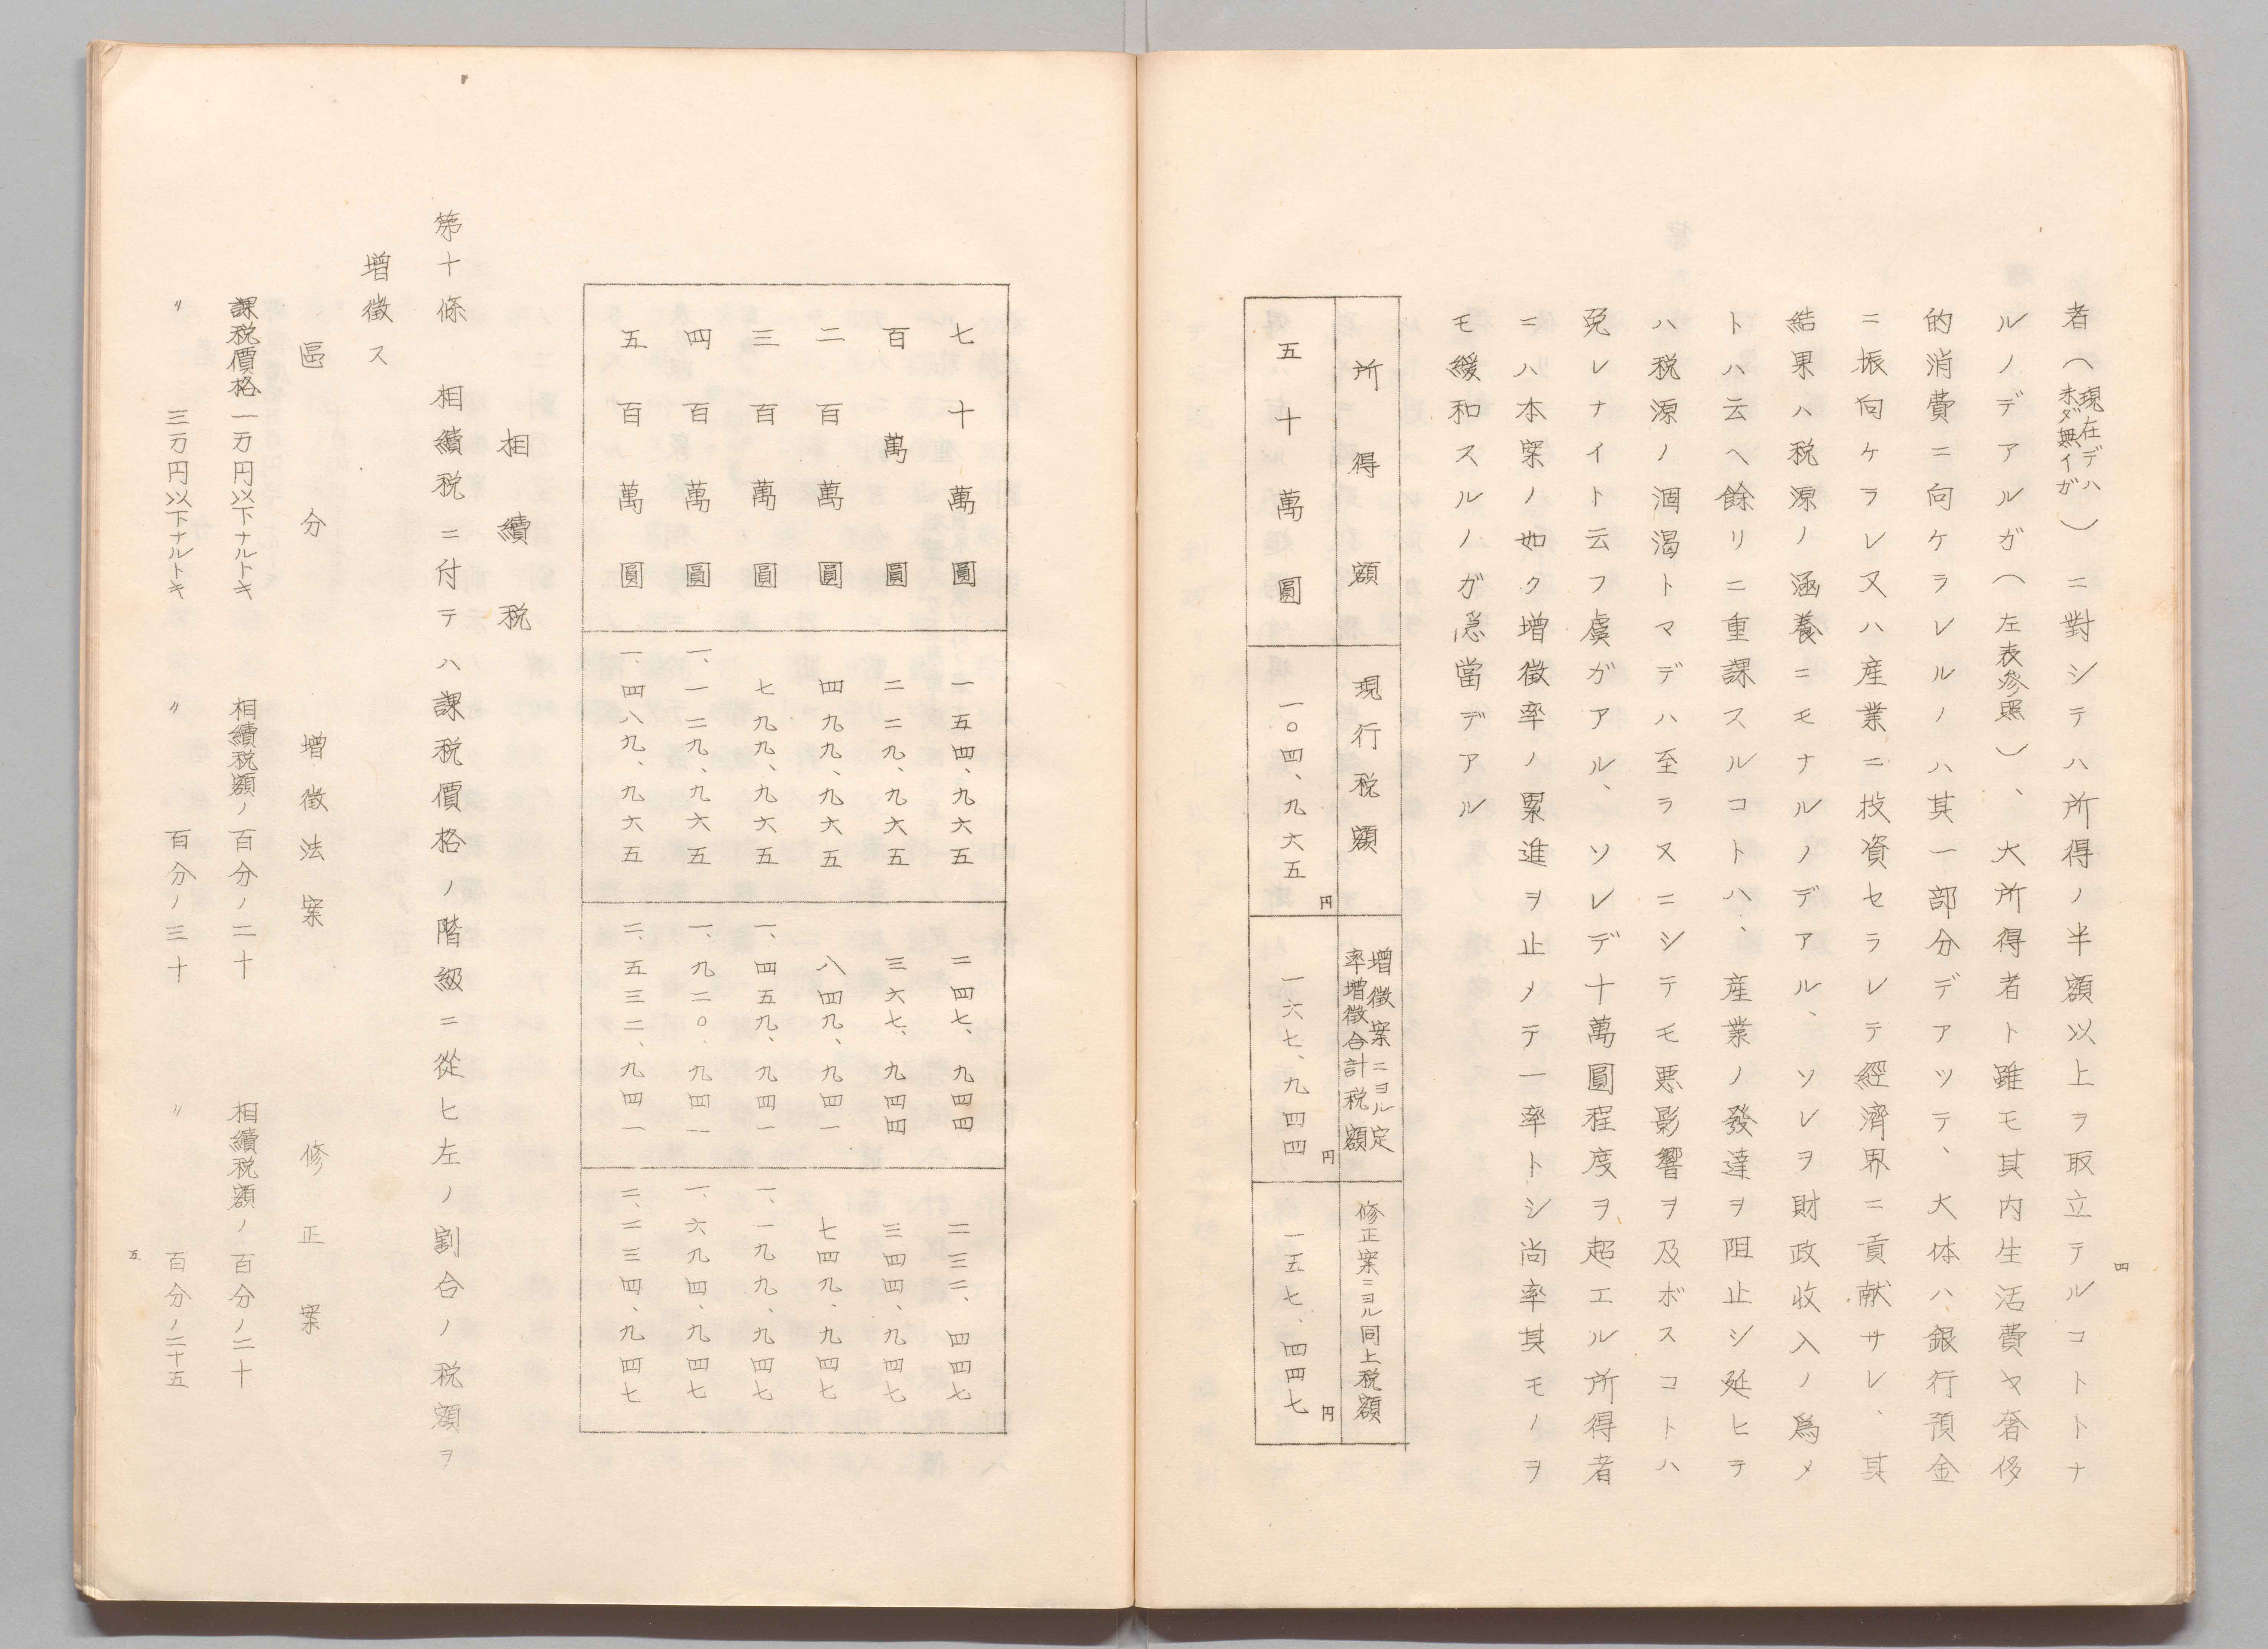 者(現在デハ未ダ無イガ)ニ對シテハ所得ノ半額以上ヲ取立テルコトトナ
ルノデアルガ(左表參照)、大所得者ト雖モ其内生活費ヤ奢侈
的消費ニ向ケラレルノハ其一部分デアツテ、大体ハ銀行預金
ニ振向ケラレ又ハ産業ニ投資セラレテ經濟界ニ貢献サレ、其
結果ハ税源ノ涵養ニモナルノデアル、ソレヲ財政收入ノ爲メ
トハ云ヘ餘リニ重課スルコトハ、産業ノ發達ヲ阻止シ延ヒテ
ハ税源ノ涸渇トマデハ至ラヌニシテモ悪影響ヲ及ボスコトハ
免レナイト云フ虞ガアル、ソレデ十萬圓程度ヲ超エル所得者
ニハ本案ノ如ク增徴率ノ累進ヲ止メテ一率トシ尚率其モノヲ
モ緩和スルノガ隠當デアル
所得額 現行税額 增徴案ニヨル定率增徴合計税額 修正案ニヨル同上税額
五十萬圓 一〇四、九六五円 一六七、九四四円 一五七、四四七円
四
七十萬圓 一五四、九六五 二四七、九四四 二三二、四四七
百萬圓 二二九、九六五 三六七、九四四 三四四、九四七
二百萬圓 四九九、九六五 八四九、九四一 七四九、九四七
三百萬圓 七九九、九六五 一、四五九、九四一 一、一九九、九四七
四百萬圓 一、一二九、九六五 一、九二〇、九四一 一、六九四、九四七
五百萬圓 一、四八九、九六五 二、五三二、九四一 二、二三四、九四七
相續税
第十條 相續税ニ付テハ課税價格ノ階級ニ從ヒ左ノ割合ノ税額ヲ
增徴ス
區分 增徴法案 修正案
課税價格一万円以下ナルトキ 相續税額ノ百分ノ二十 相續税額ノ百分ノ二十
〃 三万円以下ナルトキ 〃 百分ノ三十 〃 百分ノ二十五
五